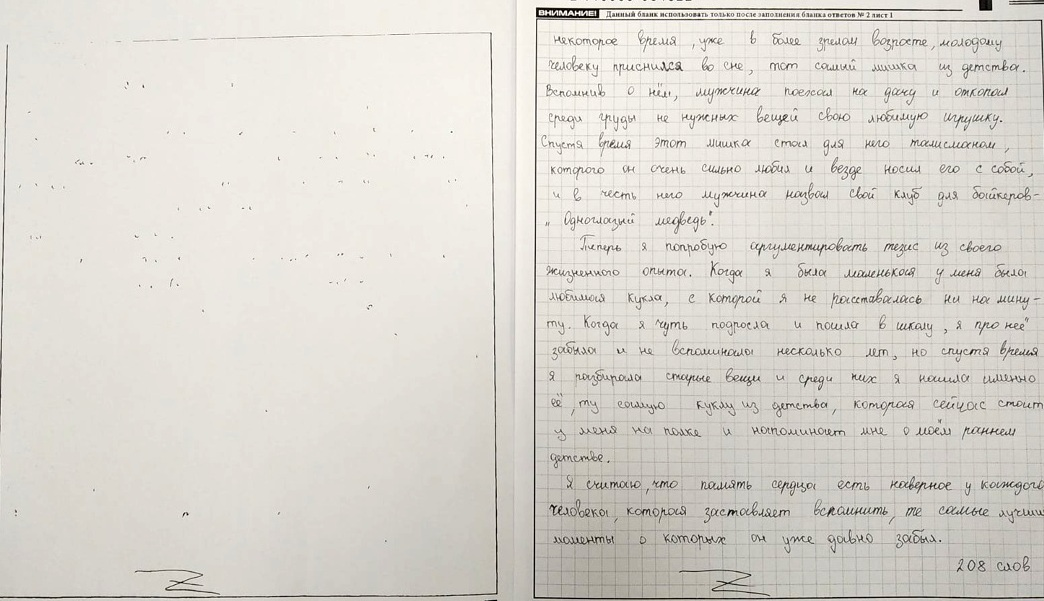 ВНИМАНИЕ! Данный бланк использовать только после заполнения бланка ответов № 2 лист 1
некоторое время, уже в более зрелом возрасте, молодому
человеку приснился во сне, тот самый мишка из детства.
Вспомнив о нём, мужчина поехал на дачу и откопал
среди груды не нужных вещей свою любимую игрушку.
Спустя время этот мишка стал для него талисманом,
которого он очень сильно любил и везде носил его с собой,
и в честь него мужчина назвал свой клуб для байкеров-
„Одноглазый медведь".
Теперь я попробую аргументировать тезис из своего
жизненного опыта. Когда я была маленькая у меня была
любимая кукла, с которой я не расставалась ни на мину-
ту. Когда я чуть подросла и пошла в школу, я про неё
забыла и не вспоминала несколько лет, но спустя время
я разбирала старые вещи и среди них я нашла именно
её, ту самую куклу из детства, которая сейчас стоит
у меня на полке и напоминает мне о моём раннем
детстве.
Я считаю, что память сердца есть наверное у каждого
человека, которая заставляет вспомнить, те самые лучшие
моменты о которых он уже давно забыл.
208 слов